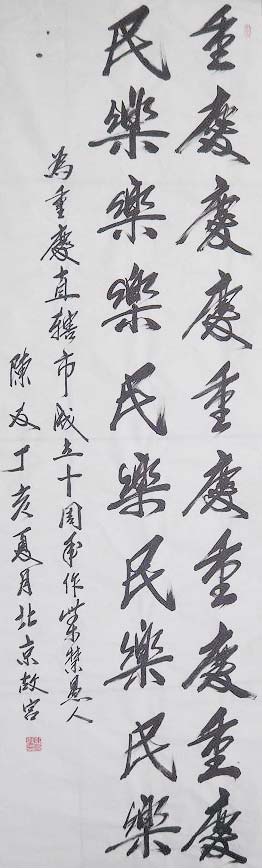 重慶慶慶重慶重慶重慶
民樂樂樂民樂民樂民樂
為重慶直轄市成立十周年作紫禁愚人
陳友丁亥夏月北京故宮